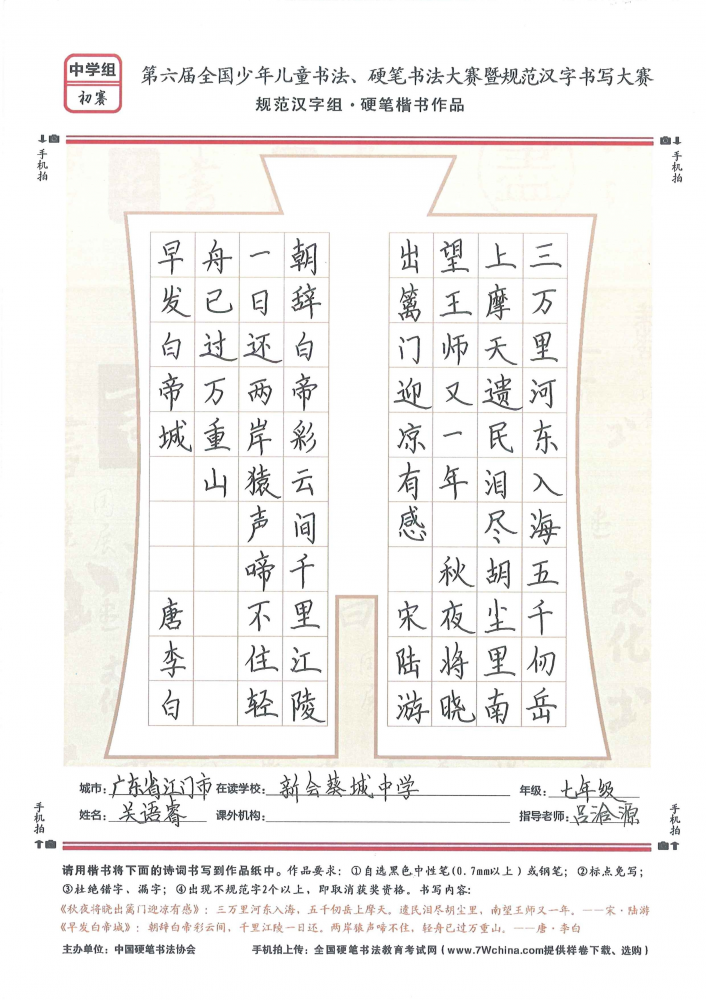 中学组
初赛
第六届全国少年儿童书法、硬笔书法大赛暨规范汉字书写大赛
规范汉字组·硬笔楷书作品
手机拍
手机拍
三万里河东入海五千仞岳
上摩天遗民泪尽胡尘里南
望王师又一年 秋夜将晓
出篱门迎凉有感 宋陆游
朝辞白帝彩云间千里江陵
一日还两岸猿声啼不住轻
舟已过万重山
早发白帝城 唐李白
城市：广东省江门市 在读学校：新会葵城中学 年级：七年级
姓名：吴语睿 课外机构： 指导老师：吕治源
手机拍
手机拍
请用楷书将下面的诗词书写到作品纸中。作品要求：①自选黑色中性笔(0.7mm以上)或钢笔；②标点免写；
③杜绝错字、漏字；④出现不规范字2个以上，即取消获奖资格。书写内容：
《秋夜将晓出篱门迎凉有感》：三万里河东入海，五千仞岳上摩天。遗民泪尽胡尘里，南望王师又一年。——宋·陆游
《早发白帝城》：朝辞白帝彩云间，千里江陵一日还。两岸猿声啼不住，轻舟已过万重山。——唐·李白
主办单位：中国硬笔书法协会 手机拍上传：全国硬笔书法教育考试网（www.7Wchina.com提供样卷下载、选购）